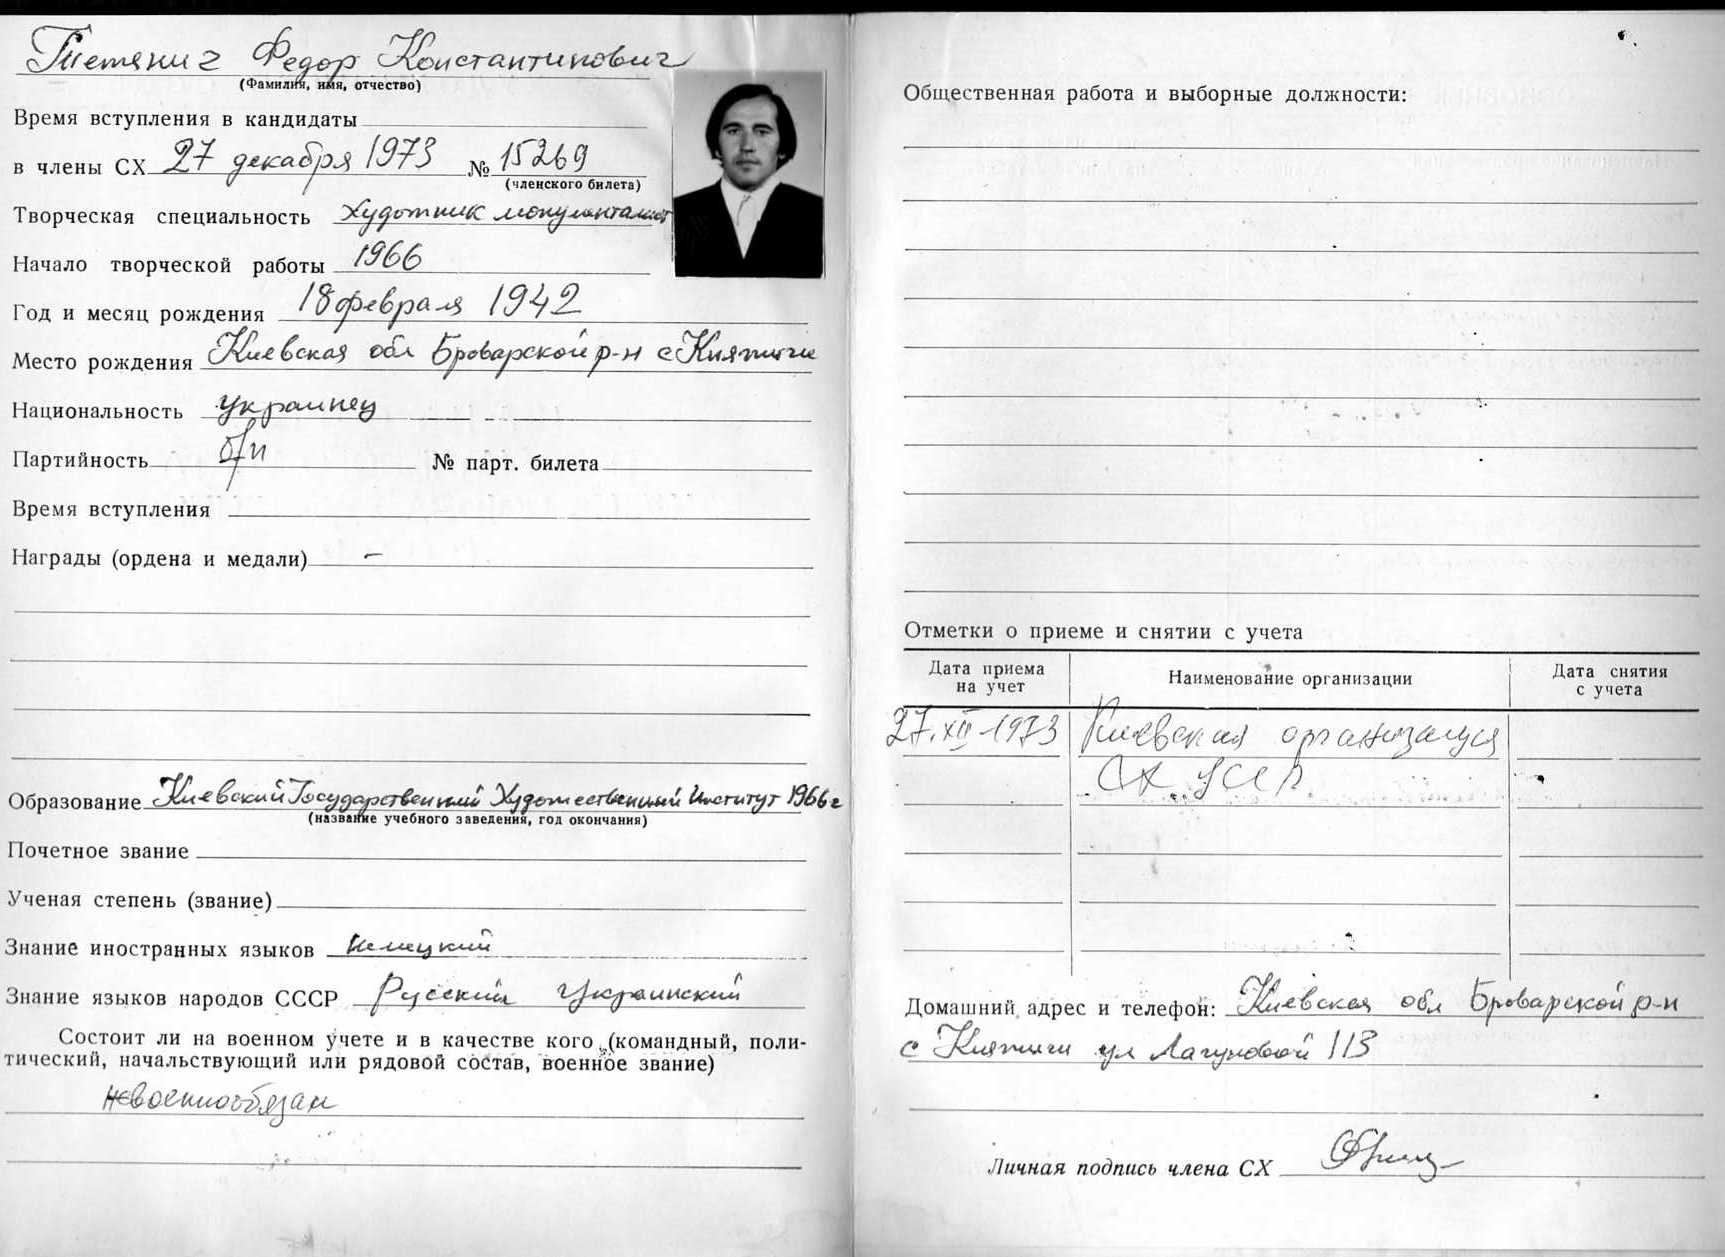 Тетянич Федор Константинович
(Фамилия, имя, отчество)
Время вступления в кандидаты
в члены СХ 27 декабря 1973 № 15269
(членского билета)
Творческая специальность художник монументалист
Начало творческой работы 1966
Год и месяц рождения 18 февраля 1942
Место рождения Киевская обл Броварской р-н с Княжичи
Национальность украинец
Партийность б/п № парт. билета
Время вступления
Награды (ордена и медали) –
Образование Киевский Государственный Художественный Институт 1966 г
(название учебного заведения, год окончания)
Почетное звание
Ученая степень (звание)
Знание иностранных языков Немецкий
Знание языков народов СССР Русский Украинский
Состоит ли на военном учете и в качестве кого (командный, поли-
тический, начальствующий или рядовой состав, военное звание)
невоеннообязан
Общественная работа и выборные должности:
Отметки о приеме и снятии с учета
Дата приема
на учет
Наименование организации
Дата снятия
с учета
27.XII-1973 Киевская организация
СХ УССР
Домашний адрес и телефон: Киевская обл Броварской р-н
с Княжичи ул Лагуновой 113
Личная подпись члена СХ